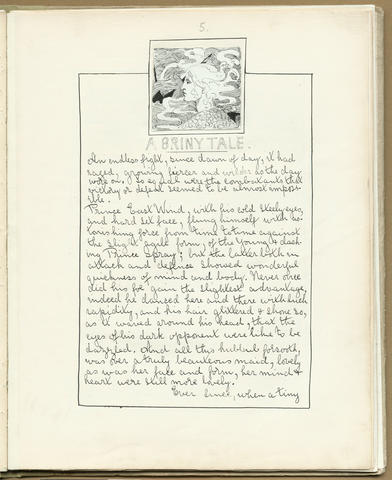 5.
A BRINY TALE.
An endless fight, since dawn of day, it had
raged, growing fiercer and wilder as the day
wore on. So equal were the combatants that
victory or defeat seemed to be almost impos-
sible.
Prince East Wind, with his cold steely eyes,
and hard set face, flung himself with as-
tonishing force from time to time against
the slight agile form, of the young & dash-
ing Prince Spray; but the latter both in
attack and defence showed wonderful
quickness of mind and body. Never once
did his foe gain the slightest advantage,
indeed he danced here and there with such
rapidity, and his hair glittered & shone so,
as it waved around his head, that the
eyes of his dark opponent were like to be
dazzled. And all this hubbub forsooth,
was over a truly beauteous maid, lovely
as was her face and form, her mind &
heart were still more lovely.
Ever since, when a tiny